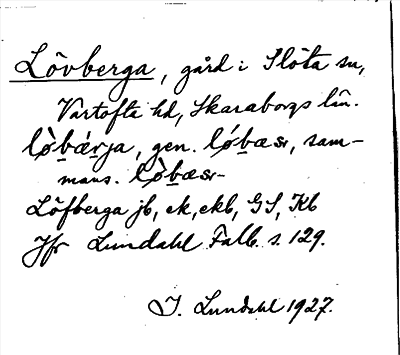 Lövberga, gård i Slöta sn,
Vartofta hd, Skaraborgs län.
lò̖bǽrja, gen. lǿbæsr, sam-
mans. lø̀bæsr-
Löfberga jb, ek, ekb, GS, Kb
Jfr Lundahl Falb. s. 129.
I. Lundahl 1927.